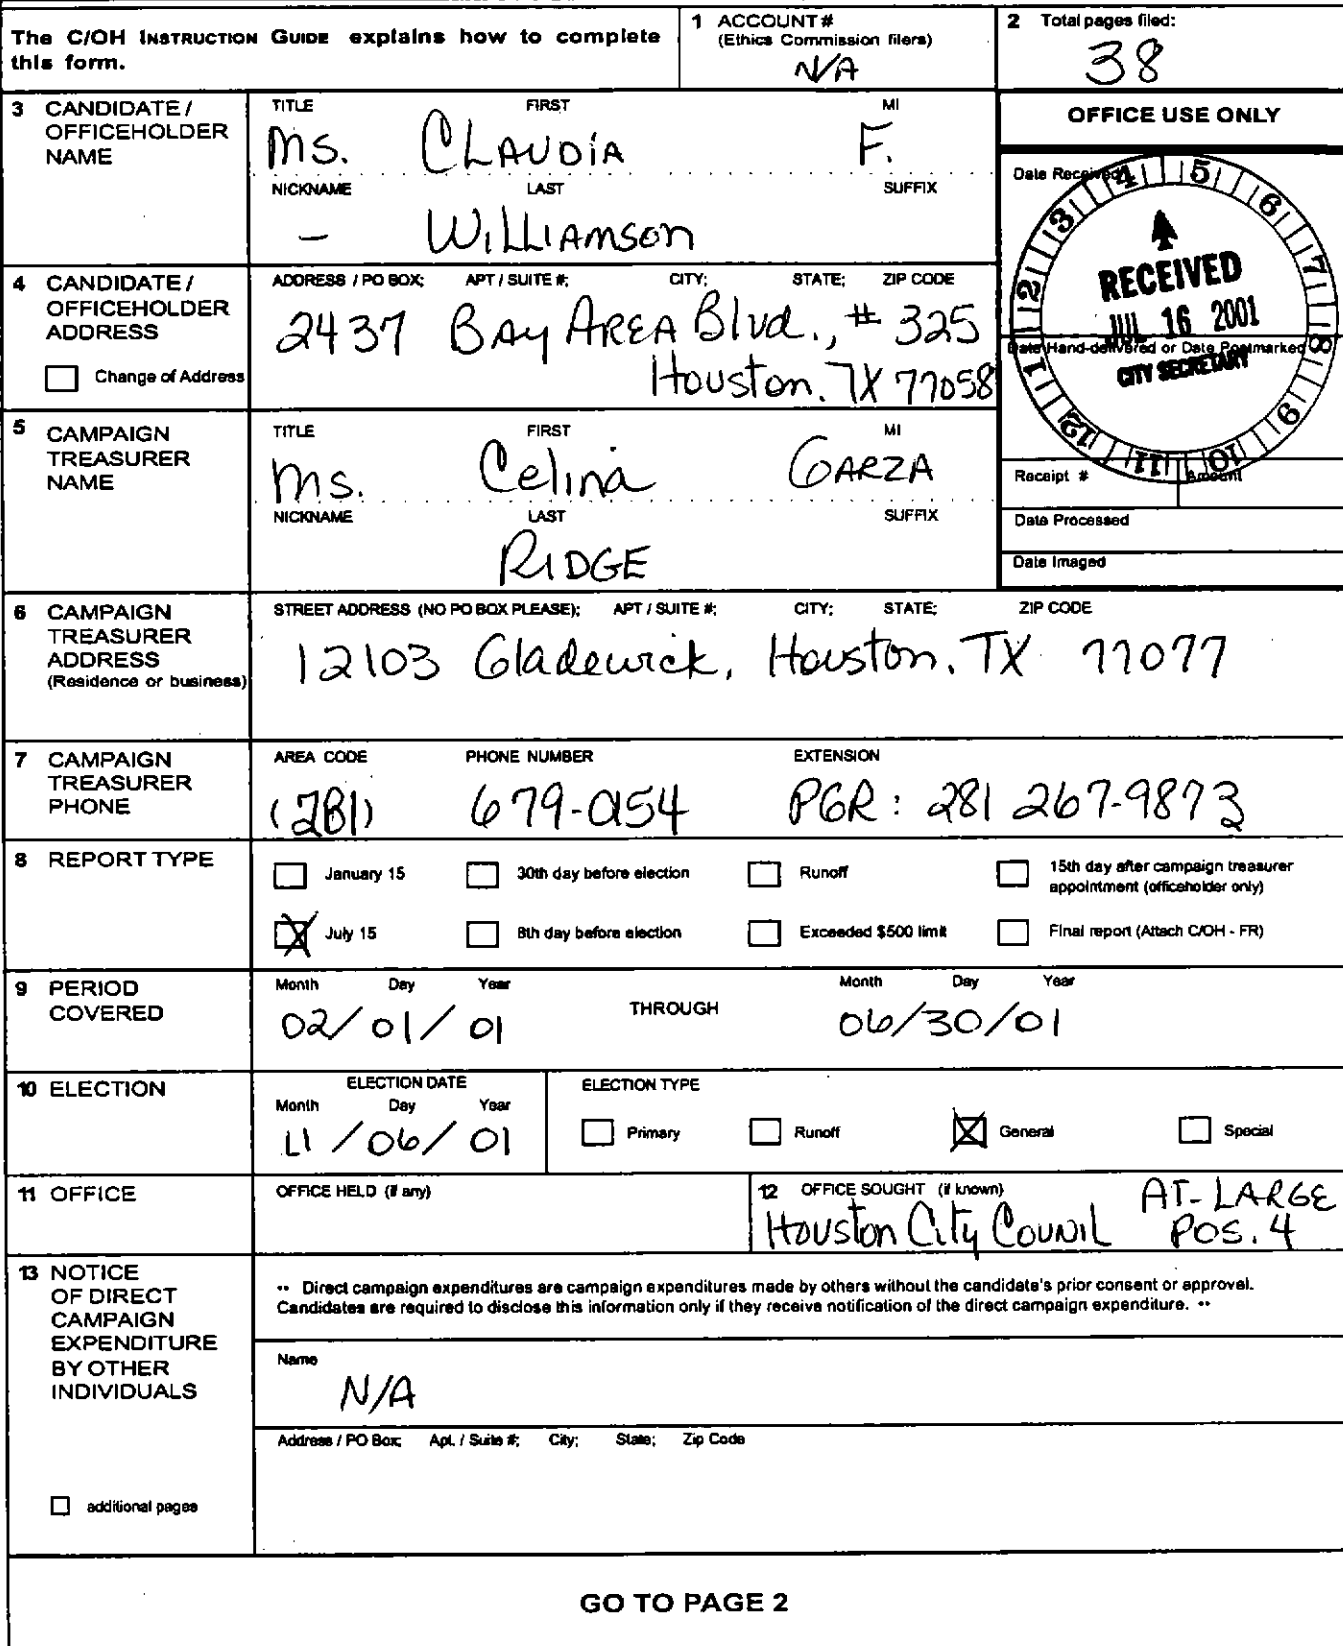 The C/OH INSTRUCTION GUIDE explains how to complete this form.
1 ACCOUNT #
(Ethics Commission filers)
N/A
2 Total pages filed:
38
3 CANDIDATE / OFFICEHOLDER NAME
TITLE FIRST MI
Ms. CLAUDIA F.
NICKNAME LAST SUFFIX
— WILLIAMSON
OFFICE USE ONLY
Date Received
RECEIVED
JUL 16 2001
CITY SECRETARY
1 2 3 4 5 6 7 8 9 10 11 12
Date Hand-delivered or Date Postmarked
Receipt # Amount
Date Processed
Date Imaged
4 CANDIDATE / OFFICEHOLDER ADDRESS
Change of Address
ADDRESS / PO BOX; APT / SUITE #; CITY; STATE; ZIP CODE
2437 BAY AREA Blvd., # 325
Houston, TX 77058
5 CAMPAIGN TREASURER NAME
TITLE FIRST MI
Ms. Celina GARZA
NICKNAME LAST SUFFIX
RIDGE
6 CAMPAIGN TREASURER ADDRESS
(Residence or business)
STREET ADDRESS (NO PO BOX PLEASE); APT / SUITE #; CITY; STATE; ZIP CODE
12103 Gladewick, Houston, TX 77077
7 CAMPAIGN TREASURER PHONE
AREA CODE PHONE NUMBER EXTENSION
(281) 679-0154 PGR: 281 267-9873
8 REPORT TYPE
January 15 30th day before election Runoff 15th day after campaign treasurer appointment (officeholder only)
X July 15 8th day before election Exceeded $500 limit Final report (Attach C/OH - FR)
9 PERIOD COVERED
Month Day Year THROUGH Month Day Year
02/01/01 06/30/01
10 ELECTION
ELECTION DATE
Month Day Year
11/06/01
ELECTION TYPE
Primary Runoff X General Special
11 OFFICE
OFFICE HELD (if any)
12 OFFICE SOUGHT (if known)
Houston City Counil AT-LARGE
POS. 4
13 NOTICE OF DIRECT CAMPAIGN EXPENDITURE BY OTHER INDIVIDUALS
additional pages
•• Direct campaign expenditures are campaign expenditures made by others without the candidate's prior consent or approval.
Candidates are required to disclose this information only if they receive notification of the direct campaign expenditure. ••
Name
N/A
Address / PO Box; Apt. / Suite #; City; State; Zip Code
GO TO PAGE 2